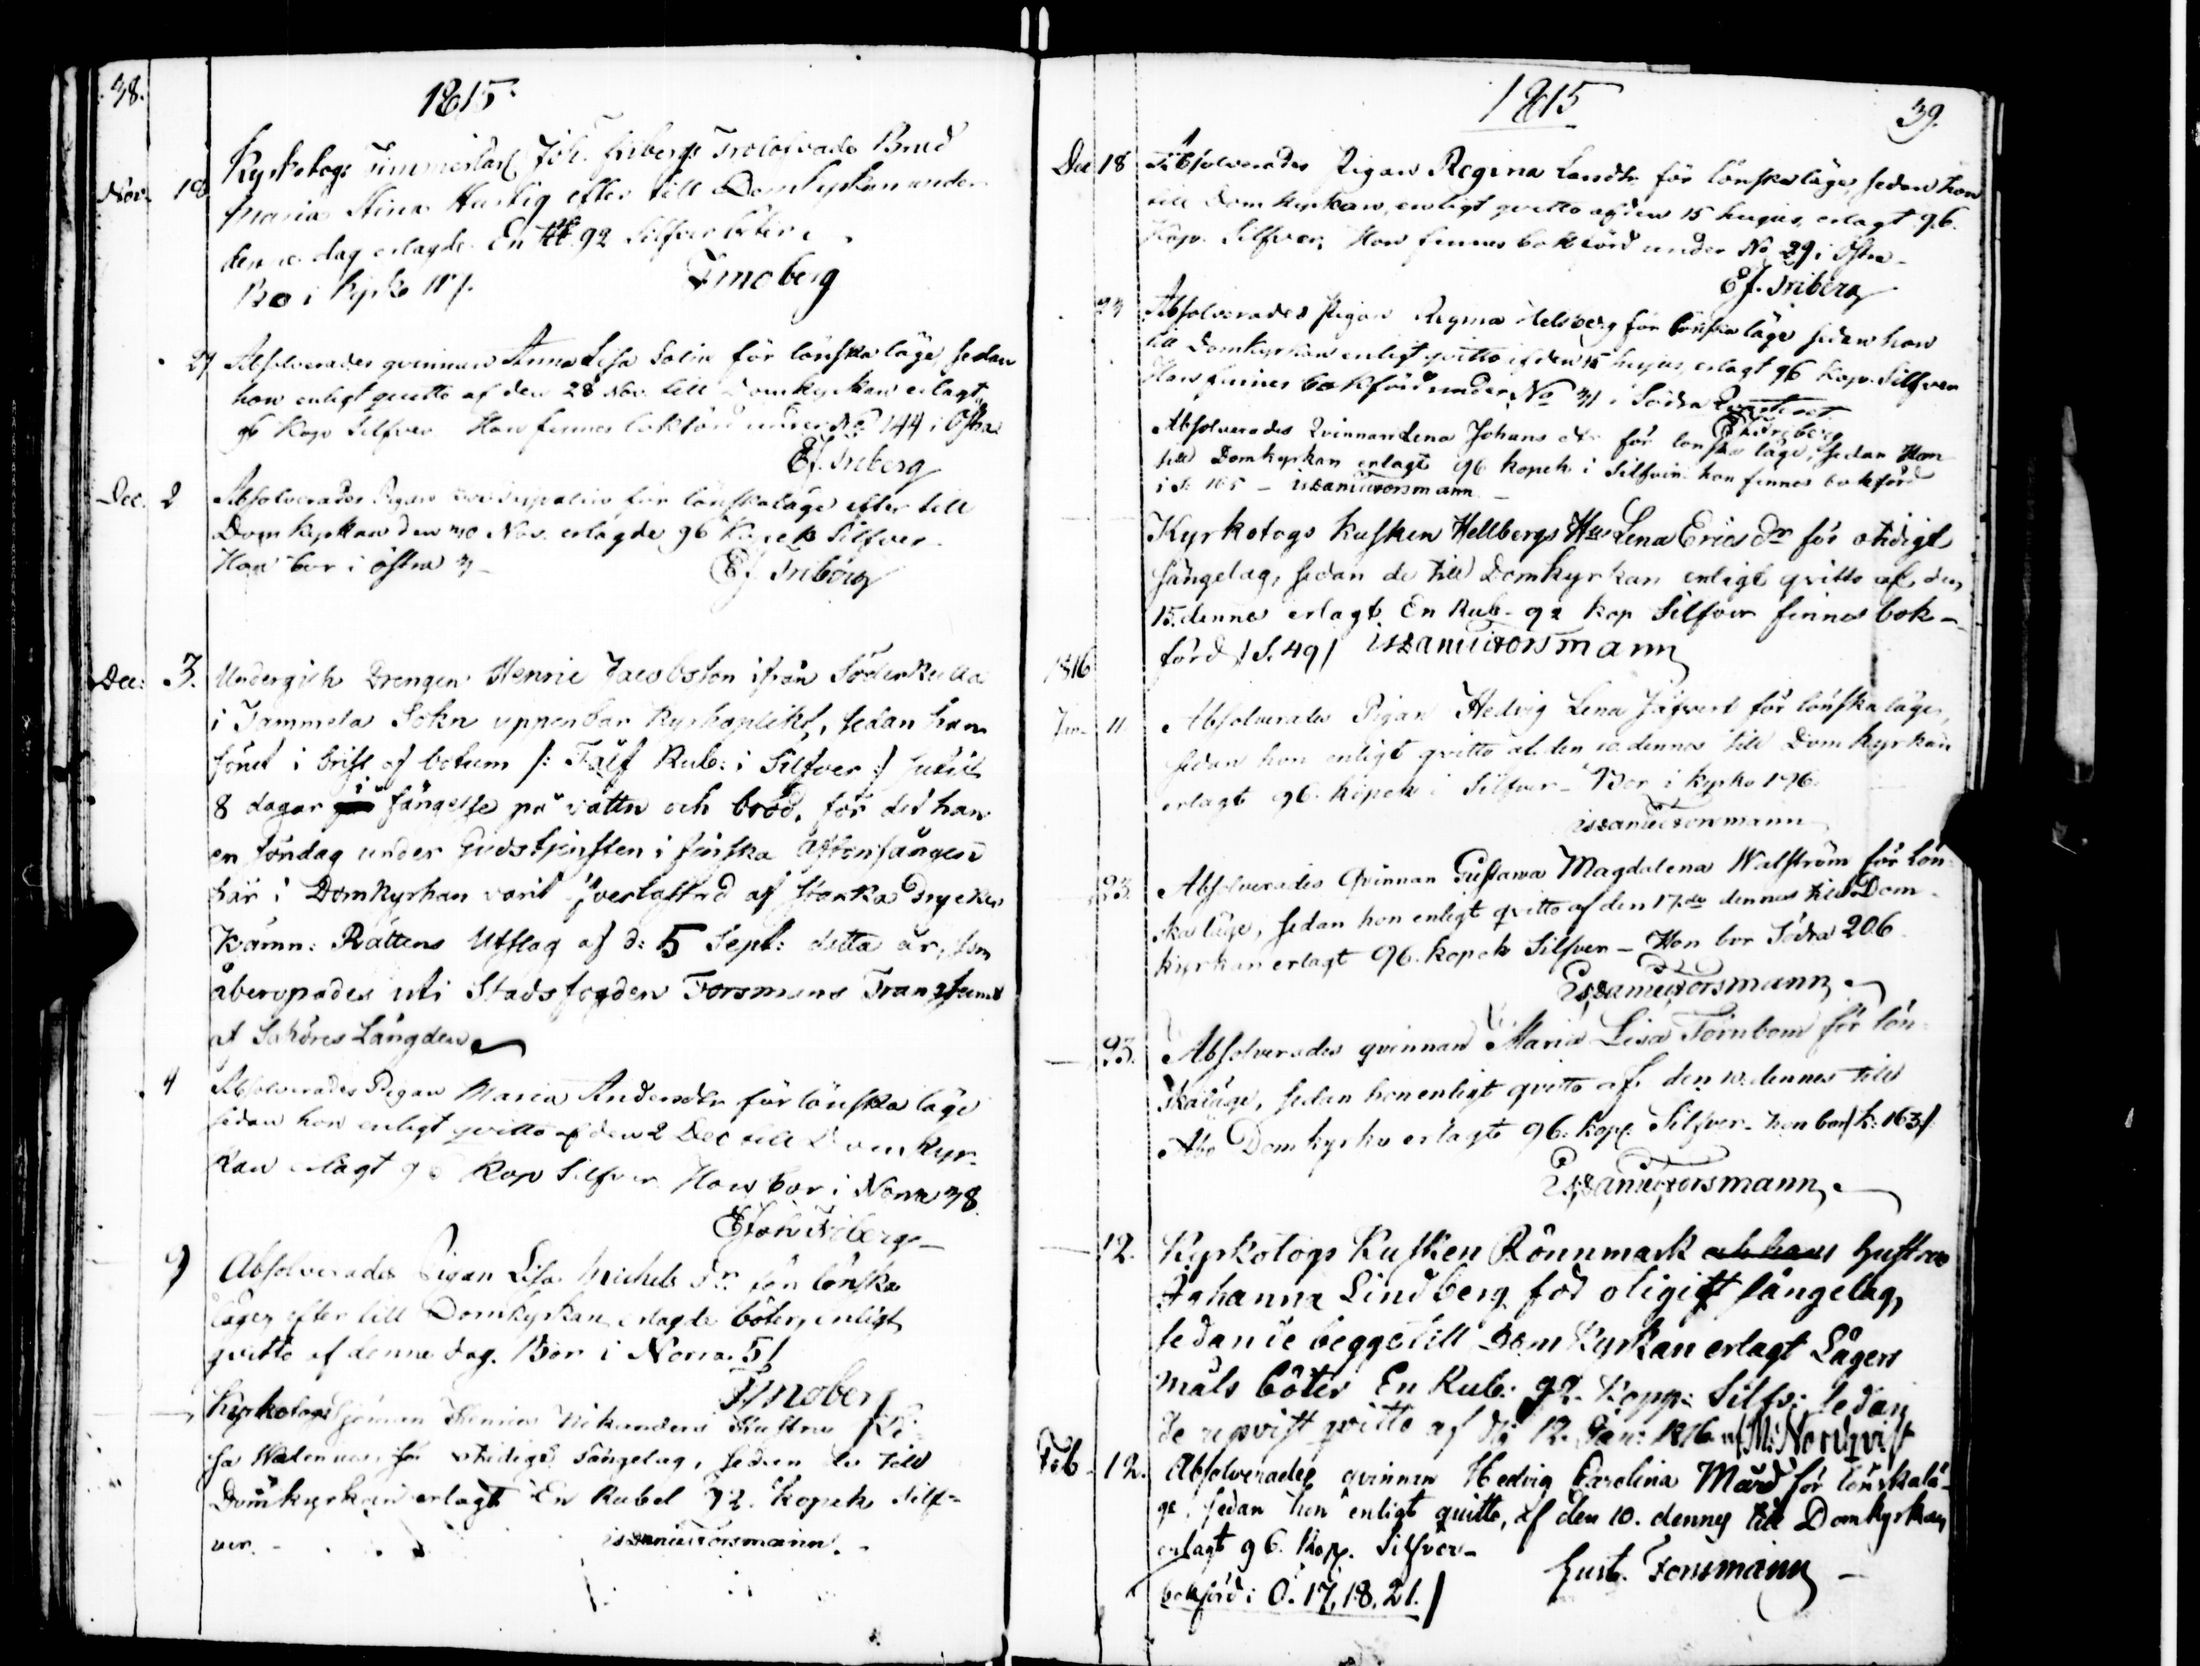 38.
1815.
Nov. 18 Kyrkotogs Timmerkarl Joh. Fribergs Trolofvade Brud
Maria Stina Hurtig efter till Domkyrkan under
den dag erlagde En 92 Silfver böter
Bo i Kyrko 187.
27 Absolverades qvinnan Anna Lisa Salin för lönskaläge, sedan
hon enligt qvitto af den 28 Nov. till Domkyrkan erlagt
96 Kop Silfver. Hon finnes bokförd under No 144 i Östra
Ef. Friberg
Dec. 2 Absolverades Pigan för lönskaläge efter till
Domkyrkan den 30 Nov. erlagde 96 Kopek Silfver.
Hon bor i östra 3
Ef. Friberg
Dec: 3. Undergick Drengen Henric Jacobsson ifrån Söderkulla
i Sokn uppenbar Kyrkoplikt, sedan han
först i brist af botum /: Tålf Rub: i Silfver :/
8 dagar i fängelse på vattn och bröd, för det han
en söndag under Gudstjensten i finska Aftonsången
här i Domkyrkan varit öfverlastad af starka Drycker
Kämn: Rättens Utslag af d: 5 Sept: detta år, som
åberopades uti Stadsfogden Forsmans Transsumt
af Saköres Längden
4 Absolverades Pigan Maria Andersdtr för lönskaläge
sedan hon enligt qvitto af den 2 Dec till Domkyr-
kan erlagt 96 Kop Silfver Hon bor i Norra 38.
Joh Friberg
9 Absolverades Pigan Lisa Michels dr. för lönska
läge, efter till Domkyrkan erlagde böter, enligt
qvitto af denna dag. Bor i Norra 51
Kyrkotogs Henric Nikanders Hustru
för otidigt sängelag, sedan de till
Domkyrkan erlagt En Rubel 92 kopek Silf-
ver.
1815
39.
Dec 18 Absolverades Pigan Regina Landtr för lönskaläge, sedan hon
till Domkyrkan, enligt qvitto af den 15 hujus, erlagt 96.
Kop. Silfver. Hon finnes bokförd under No 29 i Östra
Ef. Friberg
Absolverades Pigan Regina Helsberg för lönskaläge sedan hon
till Domkyrkan enligt qvitto af den 15 hujus, erlagt 96 Kop. Silfver
Hon finnes bokförd under No 31 i Södra Qvarteret
Friberg
Absolverades Qvinnan Lena Johans dr för lönskaläge, sedan Hon
till Domkyrkan erlagt 96 kopek i Silfver. hon finnes bokförd
i S. 165
Kyrkotogs Kusken Hellbergs Hu Lena Erics dr för otidigt
sängelag, sedan de till Domkyrkan enligt qvitto af den
15. dennes erlagt En Rub. 92 Kop Silfver finnes bok-
förd / S. 49 /
1816
Jan. 11. Absolverades Pigan Hedvig Lena Jäfvert för lönskaläge,
sedan hon enligt qvitto af den 10. dennes till Domkyrkan
erlagt 96. kopek i Silfver. Bor i kyrko 176.
23. Absolverades Qvinnan Gustawa Magdalena Walström för Lön-
skaläge, sedan hon enligt qvitto af den 17.de dennes till Dom-
kyrkan erlagt 96. kopek Silfver - Hon bor Södra 206
23. Absolverades qvinnan Maria Lisa Törnbom för lön-
skaläge, sedan hon enligt qvitto af den 10. dennes till
Åbo Domkyrka erlagt 96. Kop. Silfver. hon bor / k: 163 /.
12. Kyrkotogs Kusken Rönnmark och hans hustru
Johanna Lindberg föd otigigt sängelag,
sedan de begge till Domkyrkan erlagt Lägers
måls böter En Rub: 92. Kopp: Silfv: sedan
de upvist qvitto af d: 12. Jan: 1816 af M: Norqvist
Feb. 12. Absolverades qvinnan Hedvig Carolina Mård för lönskalä-
ge, sedan hon enligt quitto, af den 10. dennes till Domkyrkan
erlagt 96. Kop. Silfver-
Gust. Forssmann
bokförd i Ö. 17, 18. 21. /